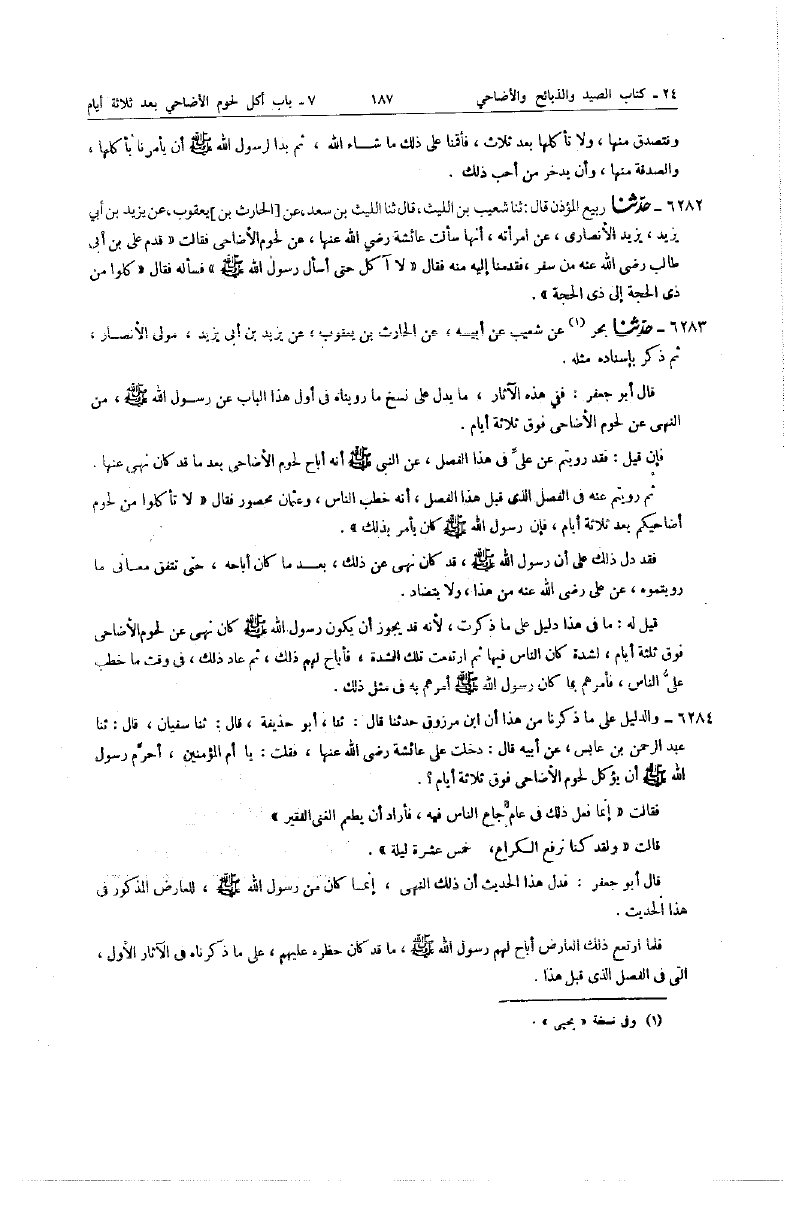 ٢٤ ـ كتاب الصيد والذبائح والأضاحي ١٨٧ ٧ ـ باب أكل لحوم الأضاحي بعد ثلاثة أيام
ونتصدق منها ، ولا نأكلها بعد ثلاث ، فأقمنا على ذلك ما شاء الله ، ثم بدا لرسول الله ﷺ أن يأمرنا بأكلها ،
والصدقة منها ، وأن يدخر من أحب ذلك .
٦٢٨٢ ـ حدّثنا ربيع المؤذن قال : ثنا شعيب بن الليث ، قال ثنا الليث بن سعد ، عن [الحارث بن] يعقوب ، عن يزيد بن أبي
يزيد ، يزيد الأنصارى ، عن امرأته ، أنها سألت عائشة رضى الله عنها ، عن لحوم الأضاحى فقالت « قدم على بن أبى
طالب رضى الله عنه من سفر ، فقدمنا إليه منه فقال « لا آكل حتى أسأل رسول الله ﷺ » فسأله فقال « كلوا من
ذى الحجة إلى ذى الحجة » .
٦٢٨٣ ـ حدّثنا بحر (١) عن شعيب عن أبيه ، عن الحارث بن يعقوب ، عن يزيد بن أبى يزيد ، مولى الأنصار ،
ثم ذكر بإسناده مثله .
قال أبو جعفر : ففي هذه الآثار ، ما يدل على نسخ ما رويناه فى أول هذا الباب عن رسول الله ﷺ ، من
النهى عن لحوم الأضاحى فوق ثلاثة أيام .
فإن قيل : فقد رويتم عن علىّ فى هذا الفصل ، عن النبى ﷺ أنه أباح لحوم الأضاحى بعد ما قد كان نهى عنها .
ثم رويتم عنه فى الفصل الذى قبل هذا الفصل ، أنه خطب الناس ، وعثمان محصور فقال « لا تأكلوا من لحوم
أضاحيكم بعد ثلاثة أيام ، فإن رسول الله ﷺ كان يأمر بذلك » .
فقد دل ذلك على أن رسول الله ﷺ ، قد كان نهى عن ذلك ، بعد ما كان أباحه ، حتى تتفق معانى ما
رويتموه ، عن على رضى الله عنه من هذا ، ولا يتضاد .
قيل له : ما فى هذا دليل على ما ذكرت ، لأنه قد يجوز أن يكون رسول الله ﷺ كان نهى عن لحوم الأضاحى
فوق ثلثة أيام ، لشدة كان الناس فيها ثم ارتفعت تلك الشدة ، فأباح لهم ذلك ، ثم عاد ذلك ، فى وقت ما خطب
علىّ الناس ، فأمرهم بما كان رسول الله ﷺ أمرهم به فى مثل ذلك .
٦٢٨٤ ـ والدليل على ما ذكرنا من هذا أن ابن مرزوق حدثنا قال : ثنا ، أبو حذيفة ، قال : ثنا سفيان ، قال : ثنا
عبد الرحمن بن عابس ، عن أبيه قال : دخلت على عائشة رضى الله عنها ، فقلت : يا أم المؤمنين ، أحرّم رسول
الله ﷺ أن يؤكل لحوم الأضاحى فوق ثلاثة أيام ؟ .
فقالت « إنما فعل ذلك فى عام جاع الناس فيه ، فأراد أن يطعم الغنى الفقير »
قالت « ولقد كنا نرفع الكراع ، خمس عشرة ليلة » .
قال أبو جعفر : فدل هذا الحديث أن ذلك النهى ، إنما كان من رسول الله ﷺ ، للعارض المذكور فى
هذا الحديث .
فلما ارتفع ذلك العارض أباح لهم رسول الله ﷺ ، ما قد كان حظره عليهم ، على ما ذكرناه فى الآثار الأول ،
التى فى الفصل الذى قبل هذا .
(١) وفى نسخة « يحيى » .